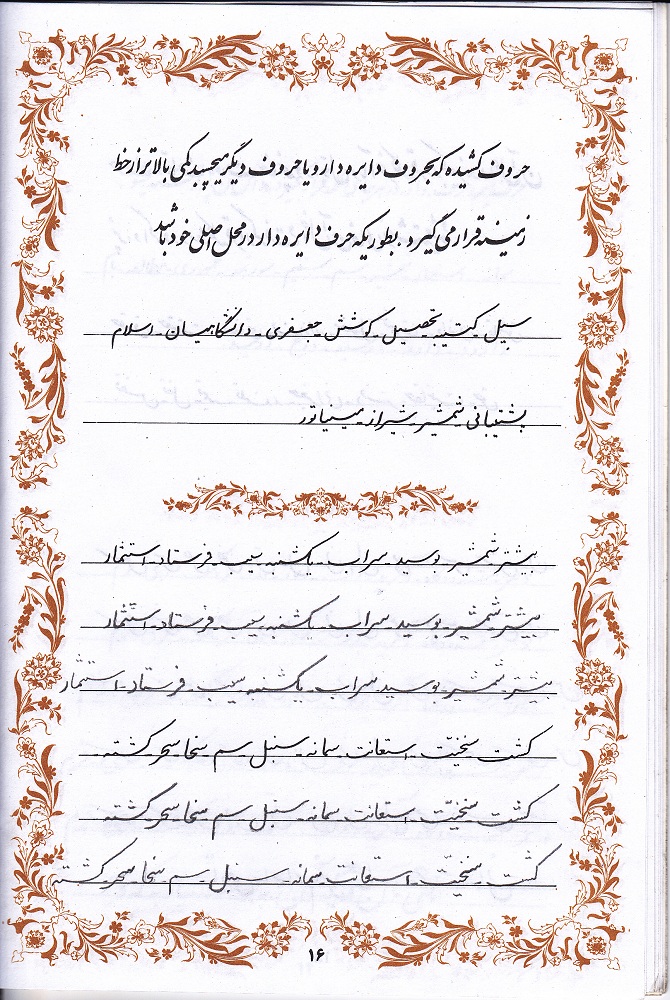 حروف کشیده که بحروف دایره دار و یا حروف دیگر میچسبد کمی بالاتر از خط
زمینه قرار می گیرد. بطوریکه حرف دایره دار در محل اصلی خود باشد
سیل - کتیبه - تحصیل - کوشش - جعفری - دانشگاهیان - اسلام
پشتیبانی - شمشیر - شیراز - مینیاتور
بیشتر - شمشیر - بوسید - سراب - یکشنبه - سیب - فرستاد - استثمار
بیشتر - شمشیر - بوسید - سراب - یکشنبه - سیب - فرستاد - استثمار
بیشتر - شمشیر - بوسید - سراب - یکشنبه - سیب - فرستاد - استثمار
کشت - سنخیّت - استعانت - سمانه - سنبل - سم - سخا - سحر - کشته
کشت - سنخیّت - استعانت - سمانه - سنبل - سم - سخا - سحر - کشته
کشت - سنخیّت - استعانت - سمانه - سنبل - سم - سخا - سحر - کشته
۱۶